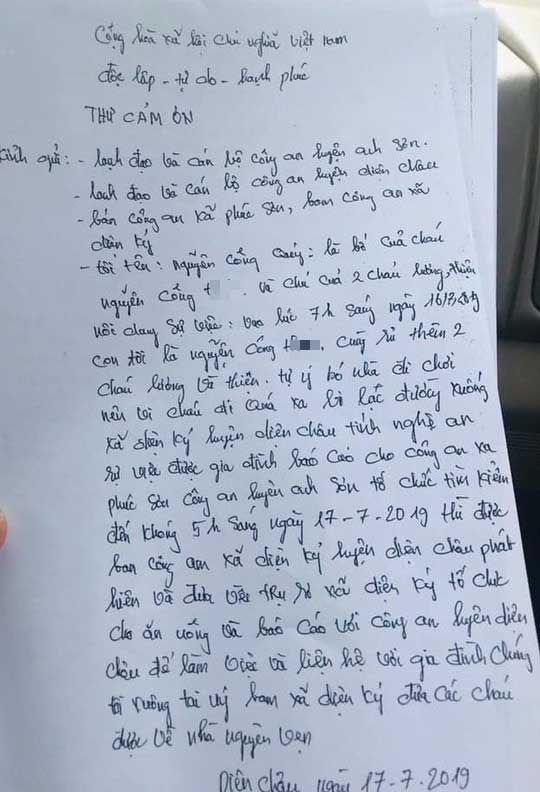 Cộng hòa xã hội chủ nghĩa việt nam
độc lập - tự do - hạnh phúc
THƯ CẢM ƠN
Kính gửi: - lanh đạo và cán bộ công an huyện anh sơn.
- lanh đạo và cán bộ công an huyện diễn châu
- bán công an xã phúc sơn, bam công an xã
diễn kỷ
- tôi tên: nguyễn công : là bố của cháu
nguyễn công t và chú cuả 2 cháu lương, thiện
nôi dung sự việc: vao lúc 7h sang ngày
con tôi là nguyễn công th , cùng rủ thêm 2
cháu lương và thiện. tự ý bỏ nhà đi chơi
nên vì cháu đi quá xa bị lạc đường xuống
xã diễn kỷ huyện diên châu tỉnh nghệ an
sự việc được gia đình baó caó cho công an xa
phúc sơn công an huyện anh sơn tổ chức tìm kiếm
đến khỏng 5h sang ngày 17-7-2019 thì được
ban công an xã diện kỷ huyện diện châu phát
hiên và đưa về trụ sở xã diễn kỷ tổ chưc
cho ăn uống và baó cáo với công an huyên diên
châu để làm việc và liện hệ với gia đình chúng
tôi xuông tai bam xã diện kỷ đưa các cháu
được về nhà nguyên vẹn
Diên châu ngày 17-7-2019